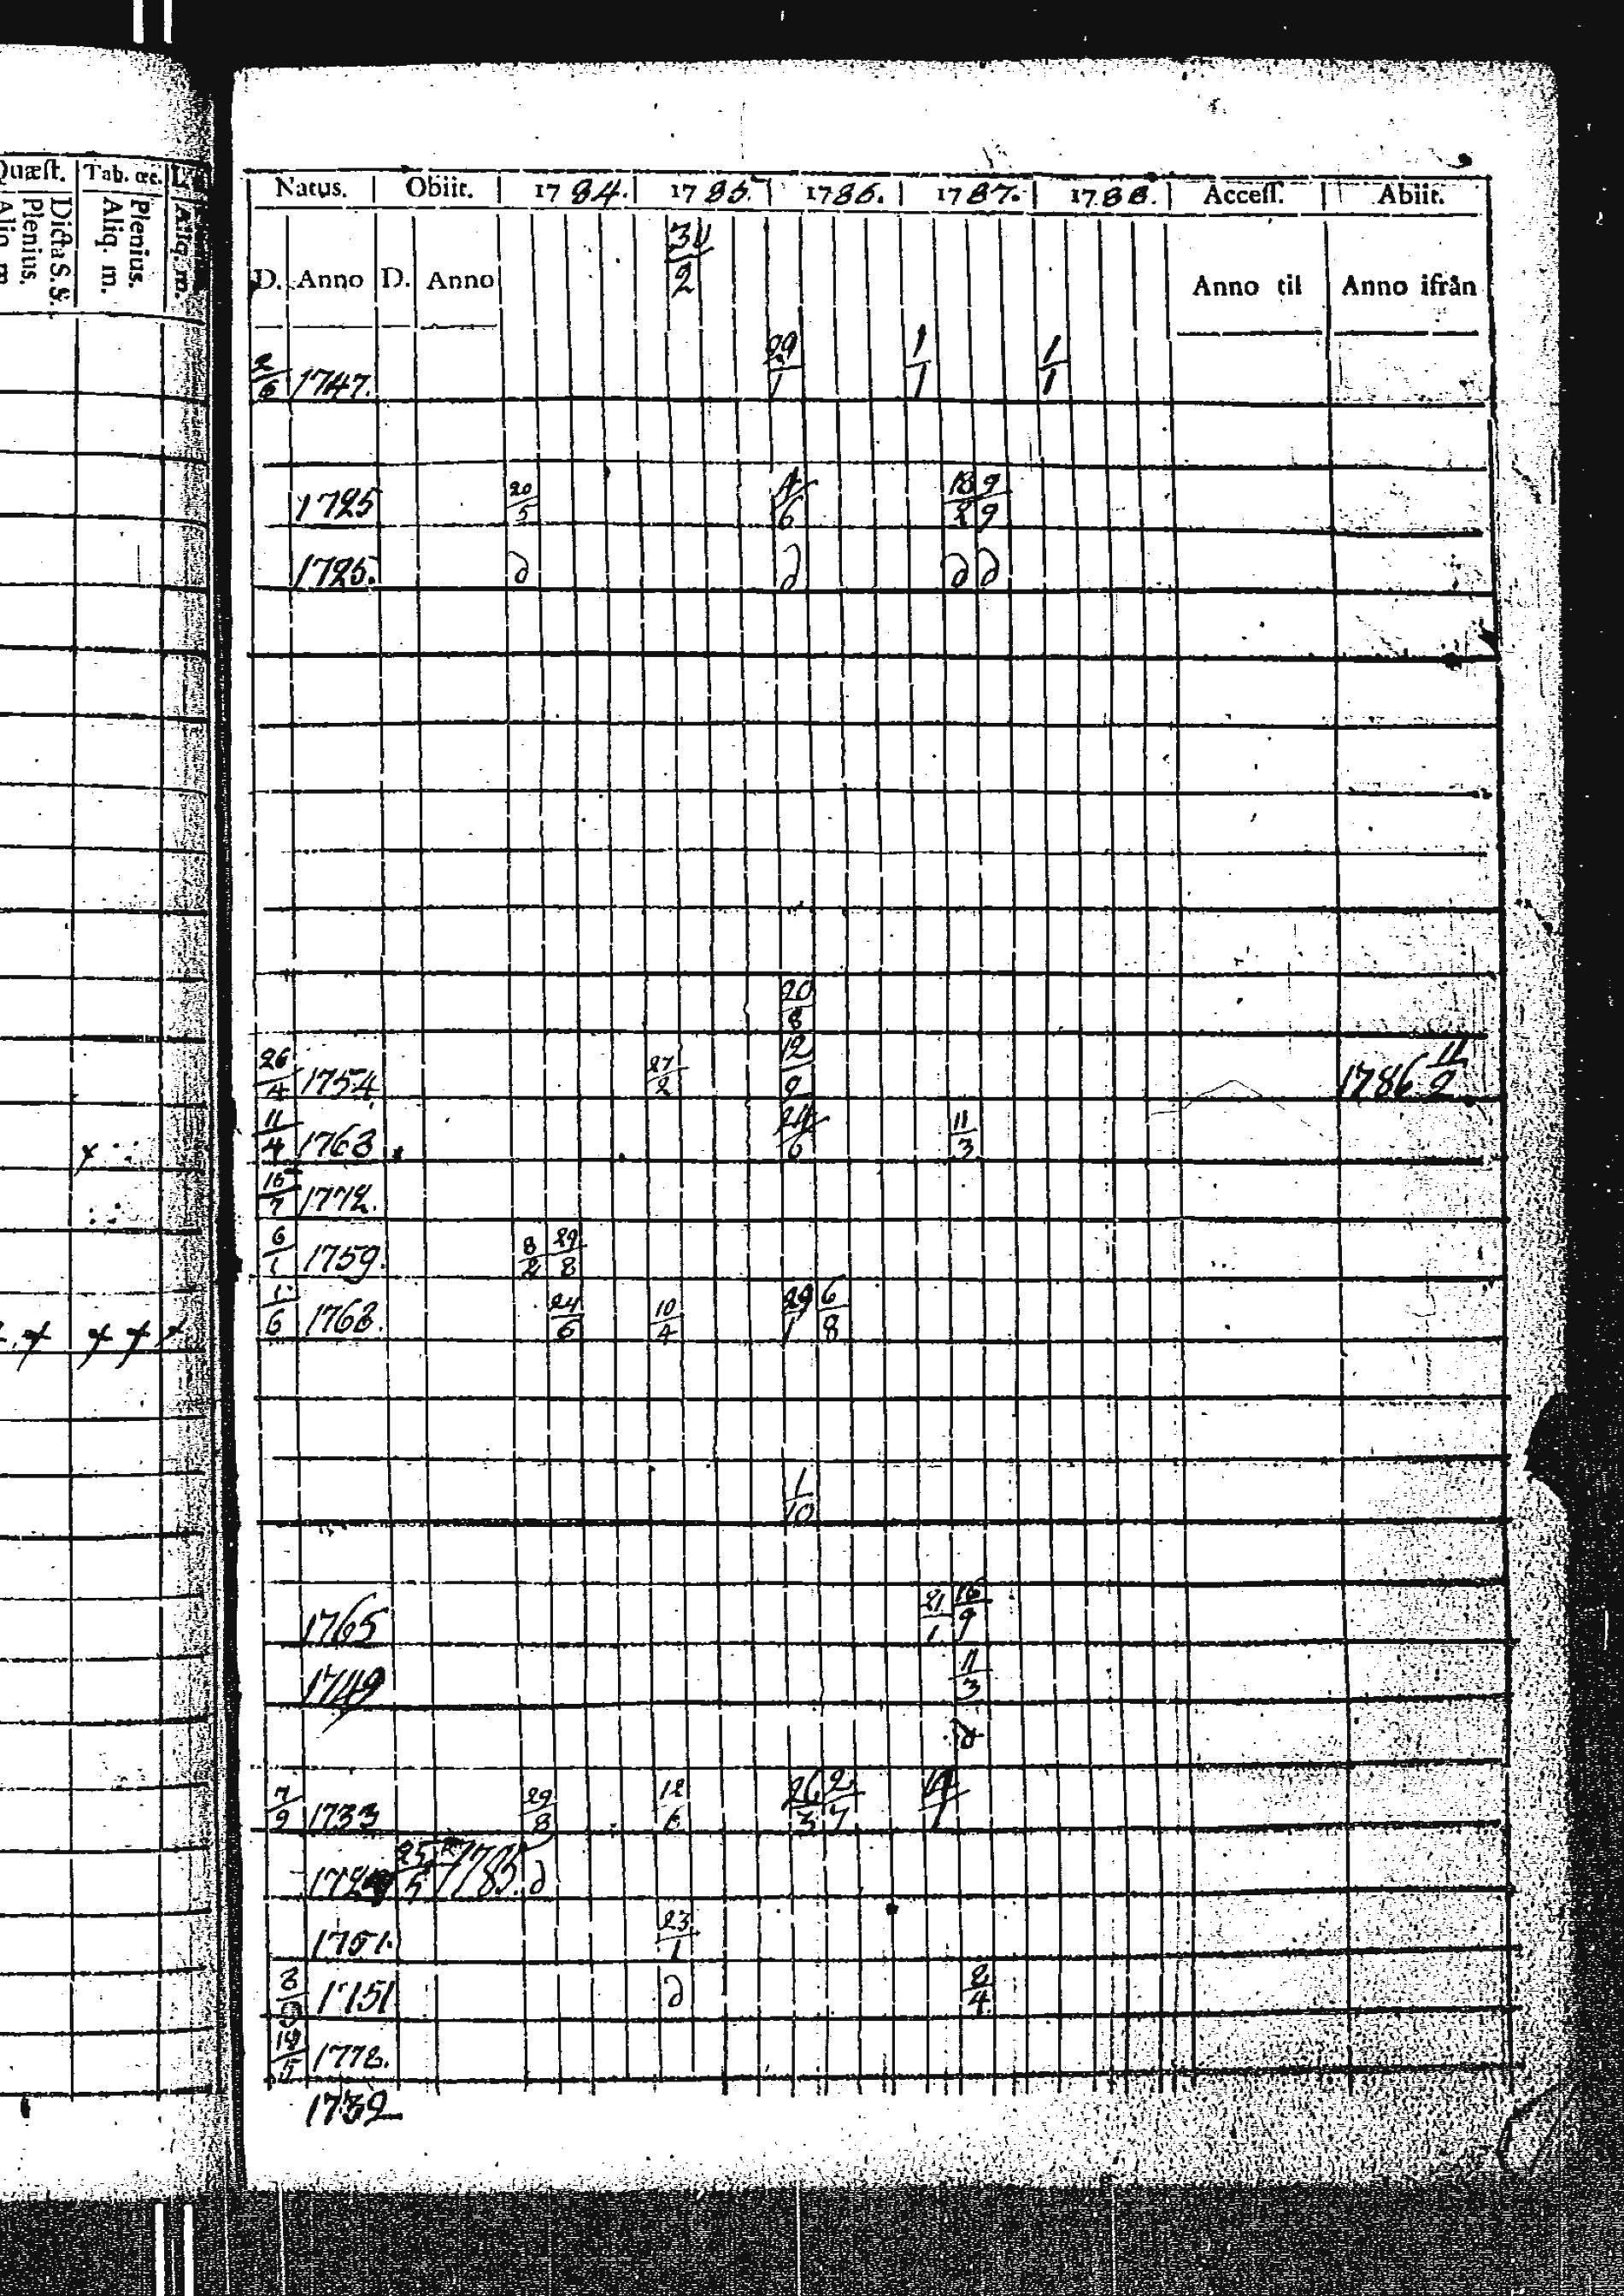 Quæst. Tab. &c.
Plenius. Dicta S. S. Aliq. m. Plenius. Aliq. m.
Natus. Obiit. 1784. 1785. 1786. 1787. 1788. Access. Abiit.
D. Anno D. Anno 2 Anno til Anno ifrån
2/6 1747. 29/1 1/1 1/1
1725 20/5 4/6 18/2 9/9
1725. d d d d
20/8
26/4 1754 27/2 12/9 1786 11/2
11/4 1763 24/6 11/3
15/7 1772.
6/1 1759. 8/2 29/8
1/6 1763. 24/6 10/4 29/1 6/8
1/10
1765 21/1 16/9
1749 11/3
d
7/9 1733 29/8 12/6 26/3 2/7
25/5 1785. d
1751. 23/1
1751 d 2/4
1772.
1732